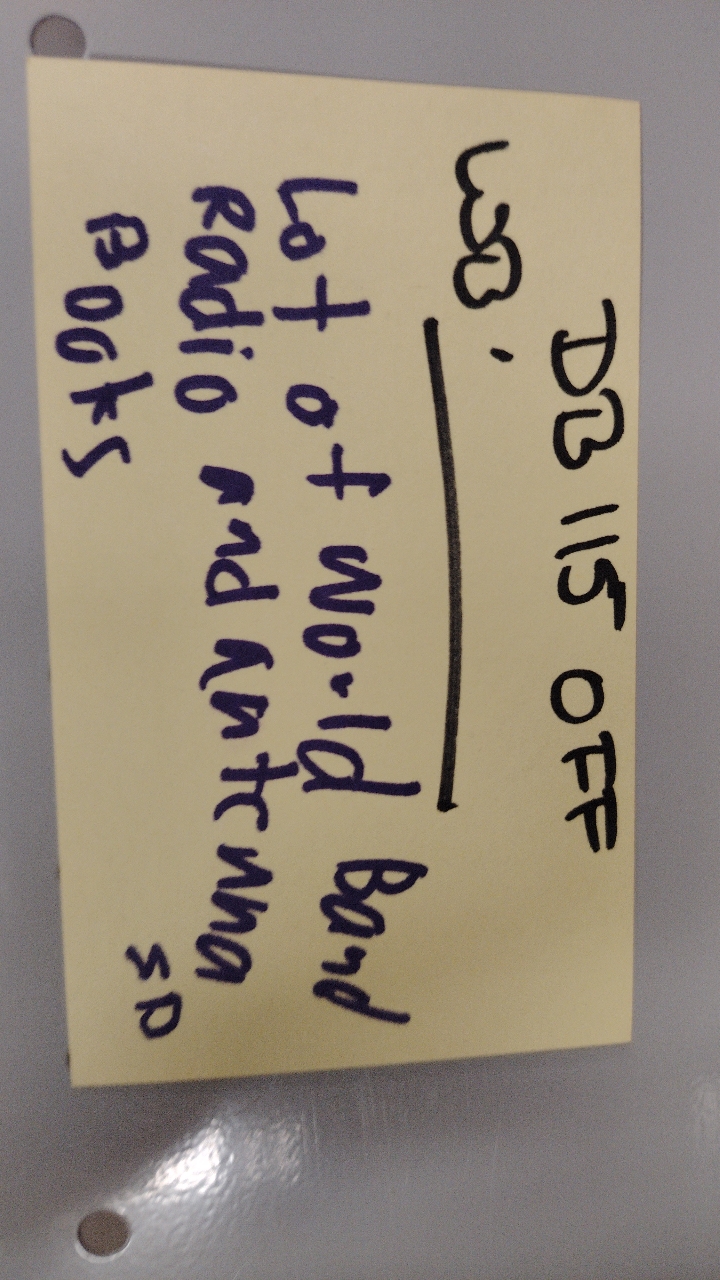 DB 115 OFF
LSB:
Lot of World Band
Radio and Antenna
Books
SD